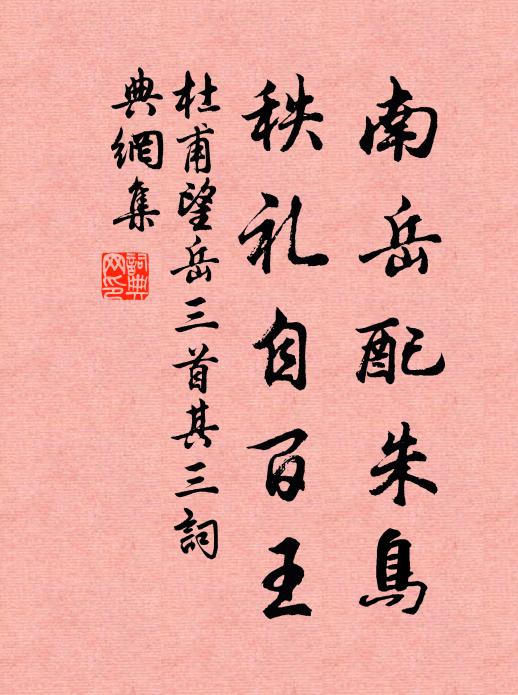 南岳配朱鳥
秩礼自百王
杜甫望岳三首其三詞
典網集
詞典
网印